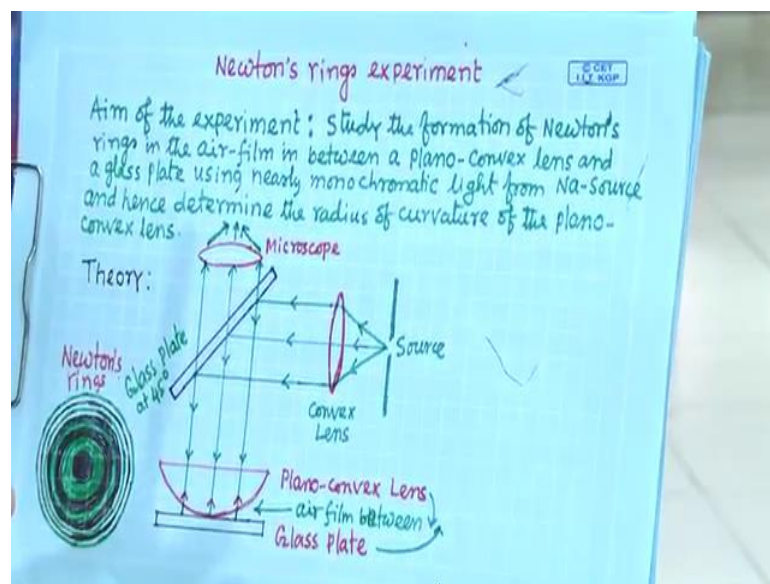 Newton's rings experiment
© CET
I.I.T. KGP
Aim of the experiment: Study the formation of Newton's
rings in the air-film in between a plano-convex lens and
a glass plate using nearly monochromatic light from Na-source
and hence determine the radius of curvature of the plano-
convex lens.
Microscope
Theory:
Glass plate
at 45°
Source
Newton's
rings
Convex
Lens
Plano-convex Lens
air film between
Glass plate